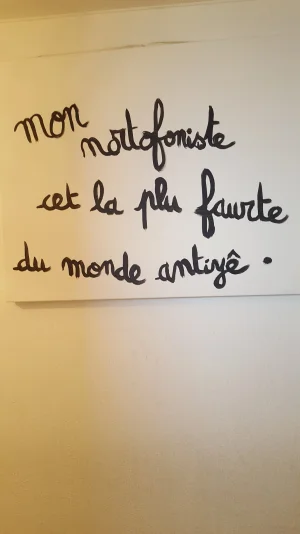 mon
nortofoniste
cet la plu faurte
du monde antiyê.